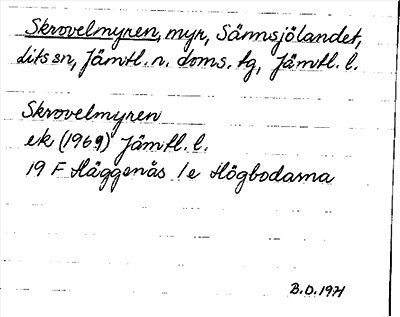 Skrovelmyren, myr, Sännsjölandet,
Lits sn, Jämtl. n. doms. tg, Jämtl. l.
Skrovelmyren
ek (1969) Jämtl. l.
19 F Häggenås 1e Högbodarna
B.O. 1971